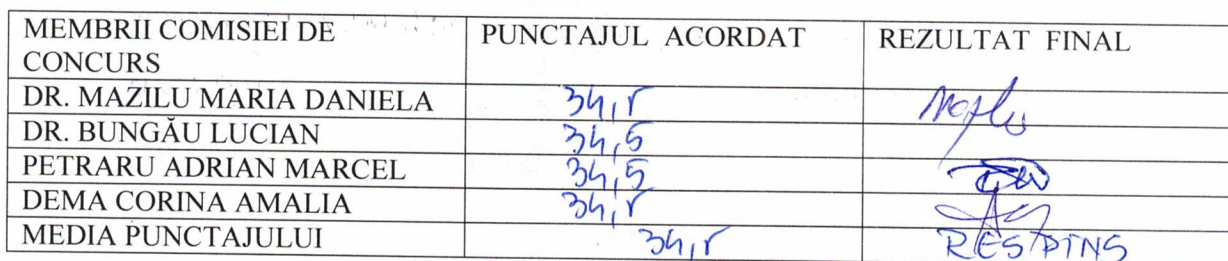 MEMBRII COMISIEI DE PUNCTAJUL ACORDAT REZULTAT FINAL
CONCURS
DR. MAZILU MARIA DANIELA 34,5
DR. BUNGĂU LUCIAN 34,5
PETRARU ADRIAN MARCEL 34,5
DEMA CORINA AMALIA 34,5
MEDIA PUNCTAJULUI 34,5 RESPINS